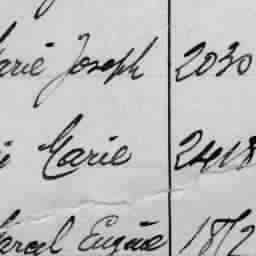 arie Joseph 2030
ie Marie 2418
Marcel Eugène 1872